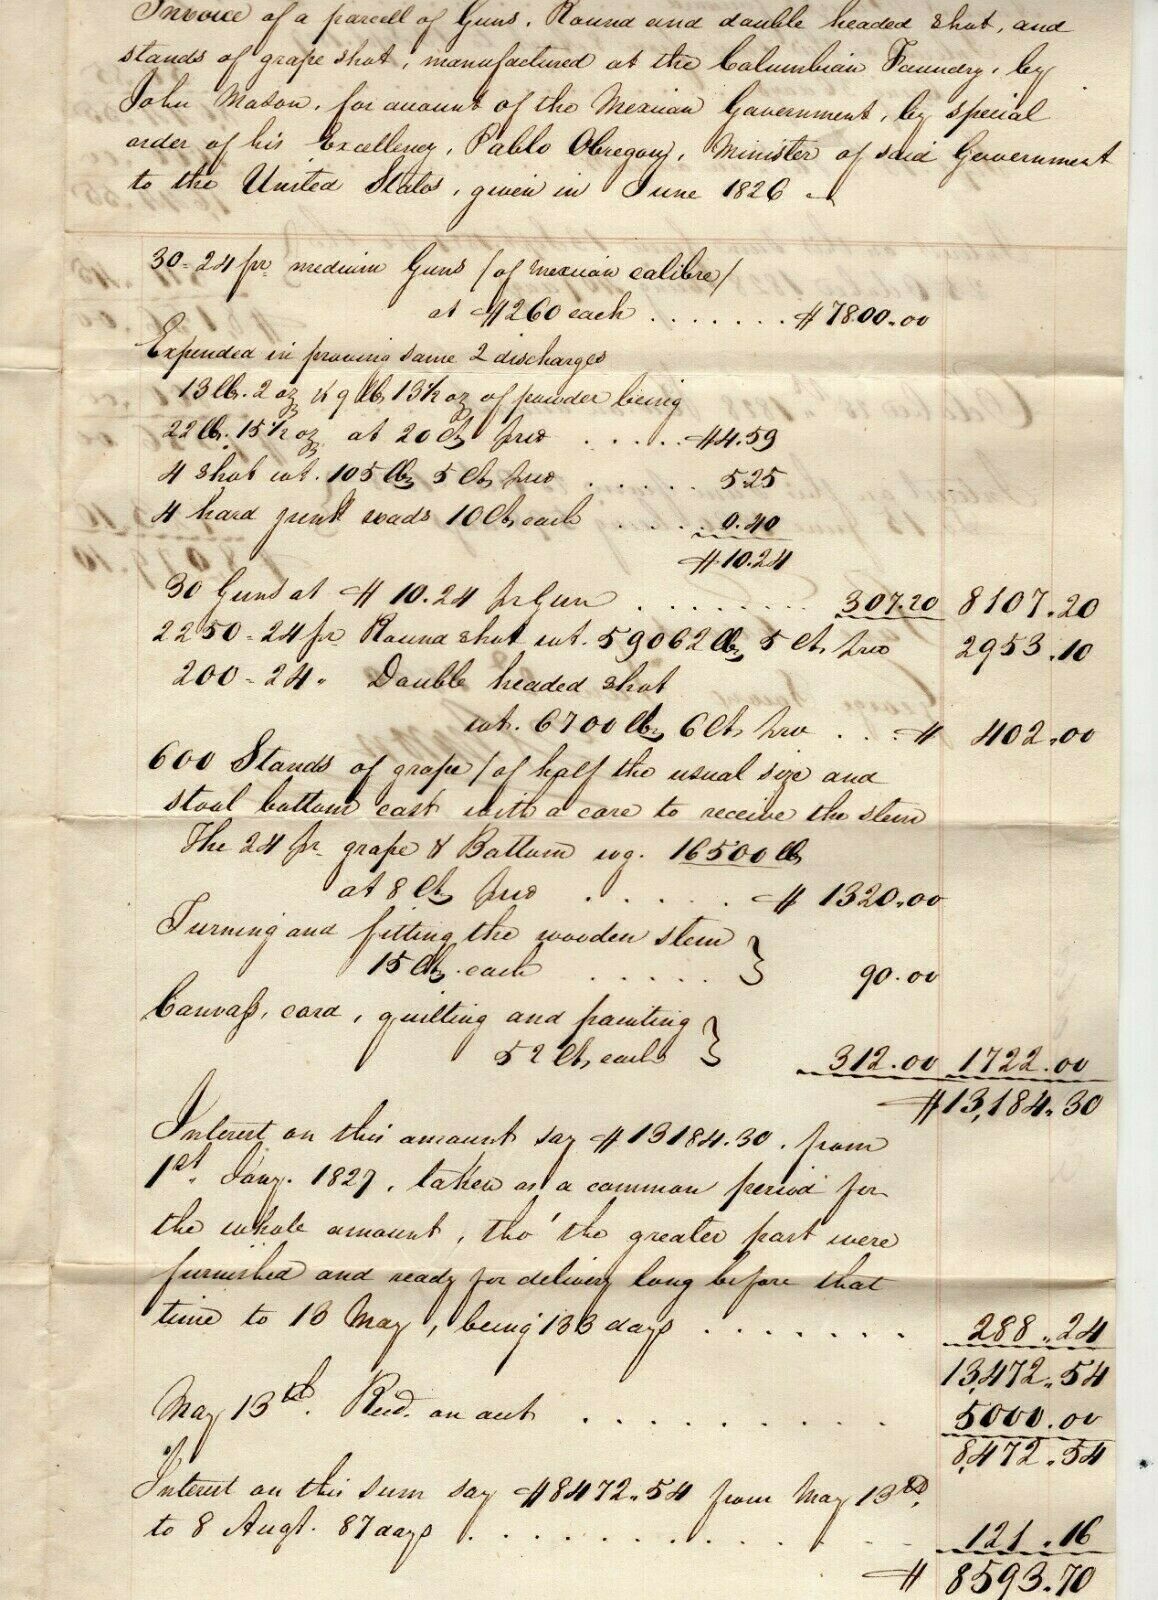 Invoice of a parcell of Guns, Round and double headed shot, and
stands of grape shot, manufactured at the Columbian Foundry, by
John Mason, for account of the Mexican Government, by special
order of his Excellency, Pablo Obregon, Minister of said Government
to the United States, given in June 1826
30-24 pr. medium Guns (of Mexican calibre)
at $260 each . . . . . . . $7800.00
Expended in proving same 2 discharges
13 lb. 2 oz & 9 lb 13½ oz of powder being
22 lb. 15½ oz at 20 Cts pr lb . . . . . $4.59
4 shot wt. 105 lbs 5 Cts pr lb . . . . . . 5.25
4 hard junk wads 10 Cts each . . . . 0.40
$10.24
30 Guns at $10.24 pr Gun . . . . . . . . 307.20 8107.20
2250-24 pr Round shot wt. 59062 lbs 5 Cts pr lb 2953.10
200-24 " Double headed shot
wt. 6700 lbs 6 Cts pr lb . . . $ 402.00
600 Stands of grape (of half the usual size and
stool bottom cast with a core to receive the stem
The 24 pr grape & Bottom wg. 16500 lbs
at 8 Cts pr lb . . . . . . $ 1320.00
Turning and fitting the wooden stem
15 Cts. each . . . . . 90.00
Canvass, cord, quilting and painting
52 Cts each 312.00 1722.00
$13,184.30
Interest on this amount say $13184.30, from
1st. Jany. 1827, taken as a common period for
the whole amount, tho' the greater part were
furnished and ready for delivery long before that
time to 13 May, being 133 days . . . . . . . 288.24
13,472.54
May 13th. Recd. on acct . . . . . . . . . . 5000.00
8,472.54
Interest on this sum say $8472.54 from May 13th,
to 8 Augt. 87 days . . . . . . . . . . . 121.16
$ 8593.70